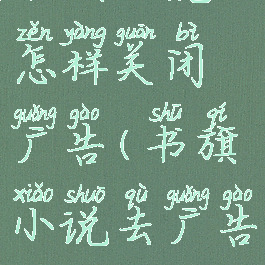 zěn yàng guān bì
怎样关闭
guǎng gào shū qí
广告(书旗
xiǎo shuō qù guǎng gào
小说去广告